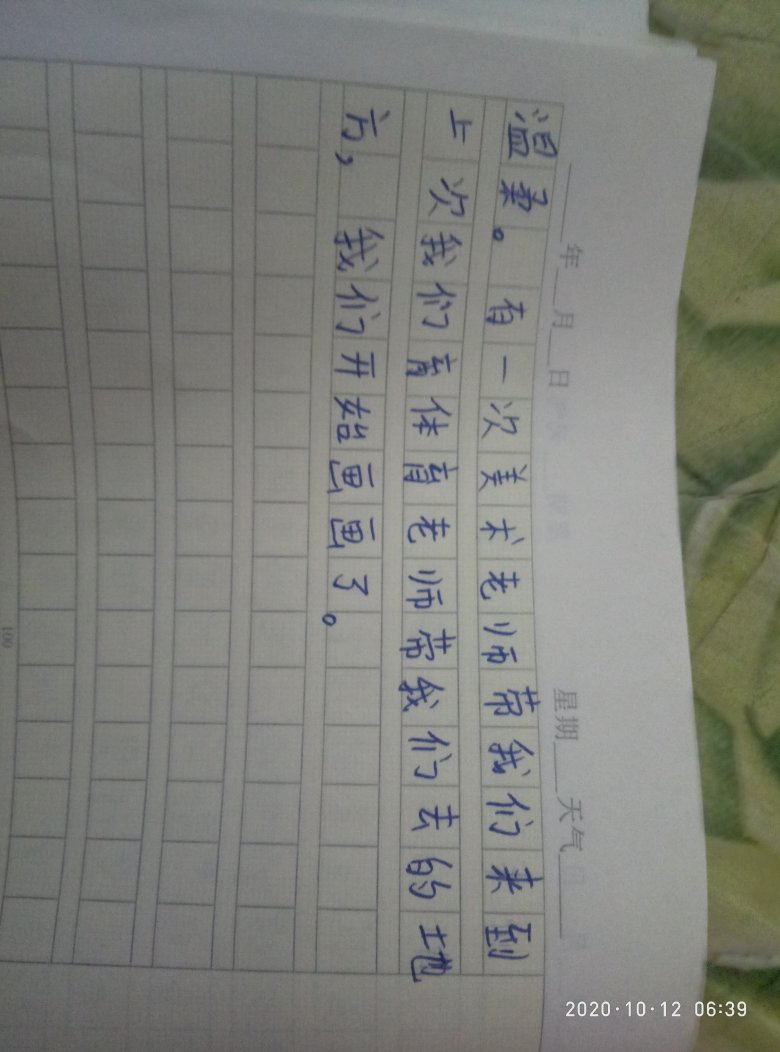 年 月 日 星期 天气
温柔。有一次美术老师带我们来到
上次我们育体育老师带我们去的地
方，我们开始画画了。
100
2020·10·12 06:39